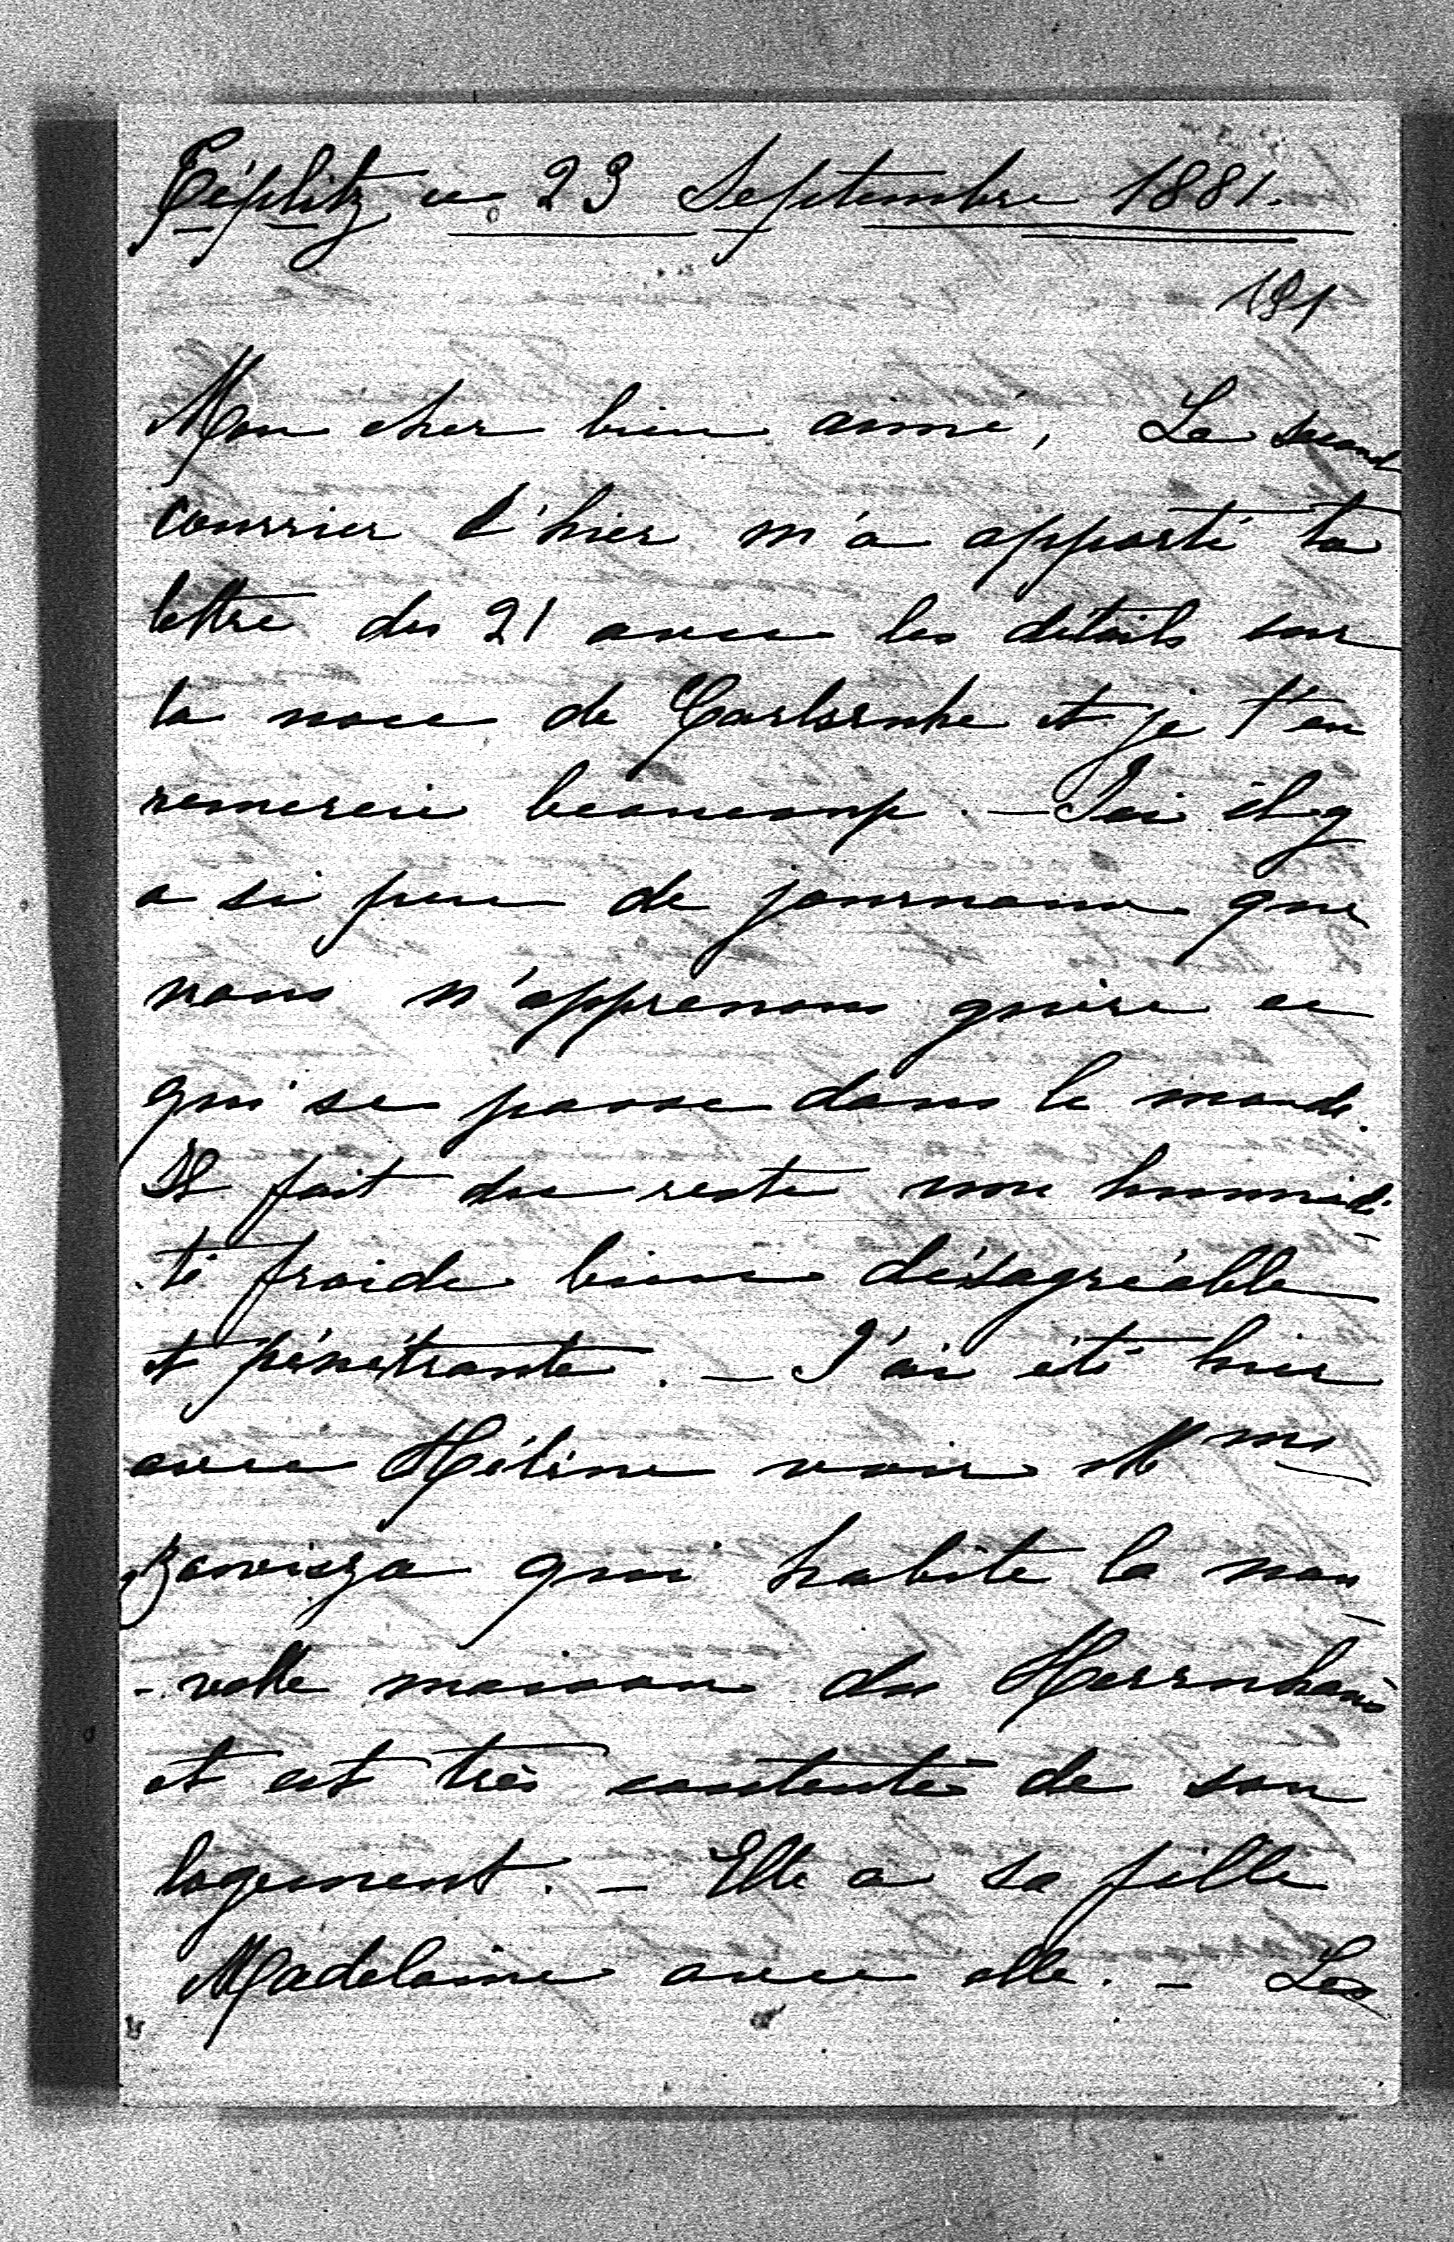 Téplitz ce 23 Septembre 1881.
191
Mon cher bien aimé, Le second
courrier d'hier m'a apporté ta
lettre du 21 avec les détails sur
la noce de Carlsruhe et je t'en
remercie beaucoup. — Ici il y
a si peu de journaux que
nous n'apprenons guère ce
qui se passe dans le monde.
Il fait du reste une humidi-
-té froide bien désagréable
et pénétrante. — J'ai été hier
avec Hélène voir Mme
Zawisza qui habite la nou-
-velle maison du Herrnhaus
et est très contente de son
logement. — Elle a sa fille
Madelaine avec elle. — Les